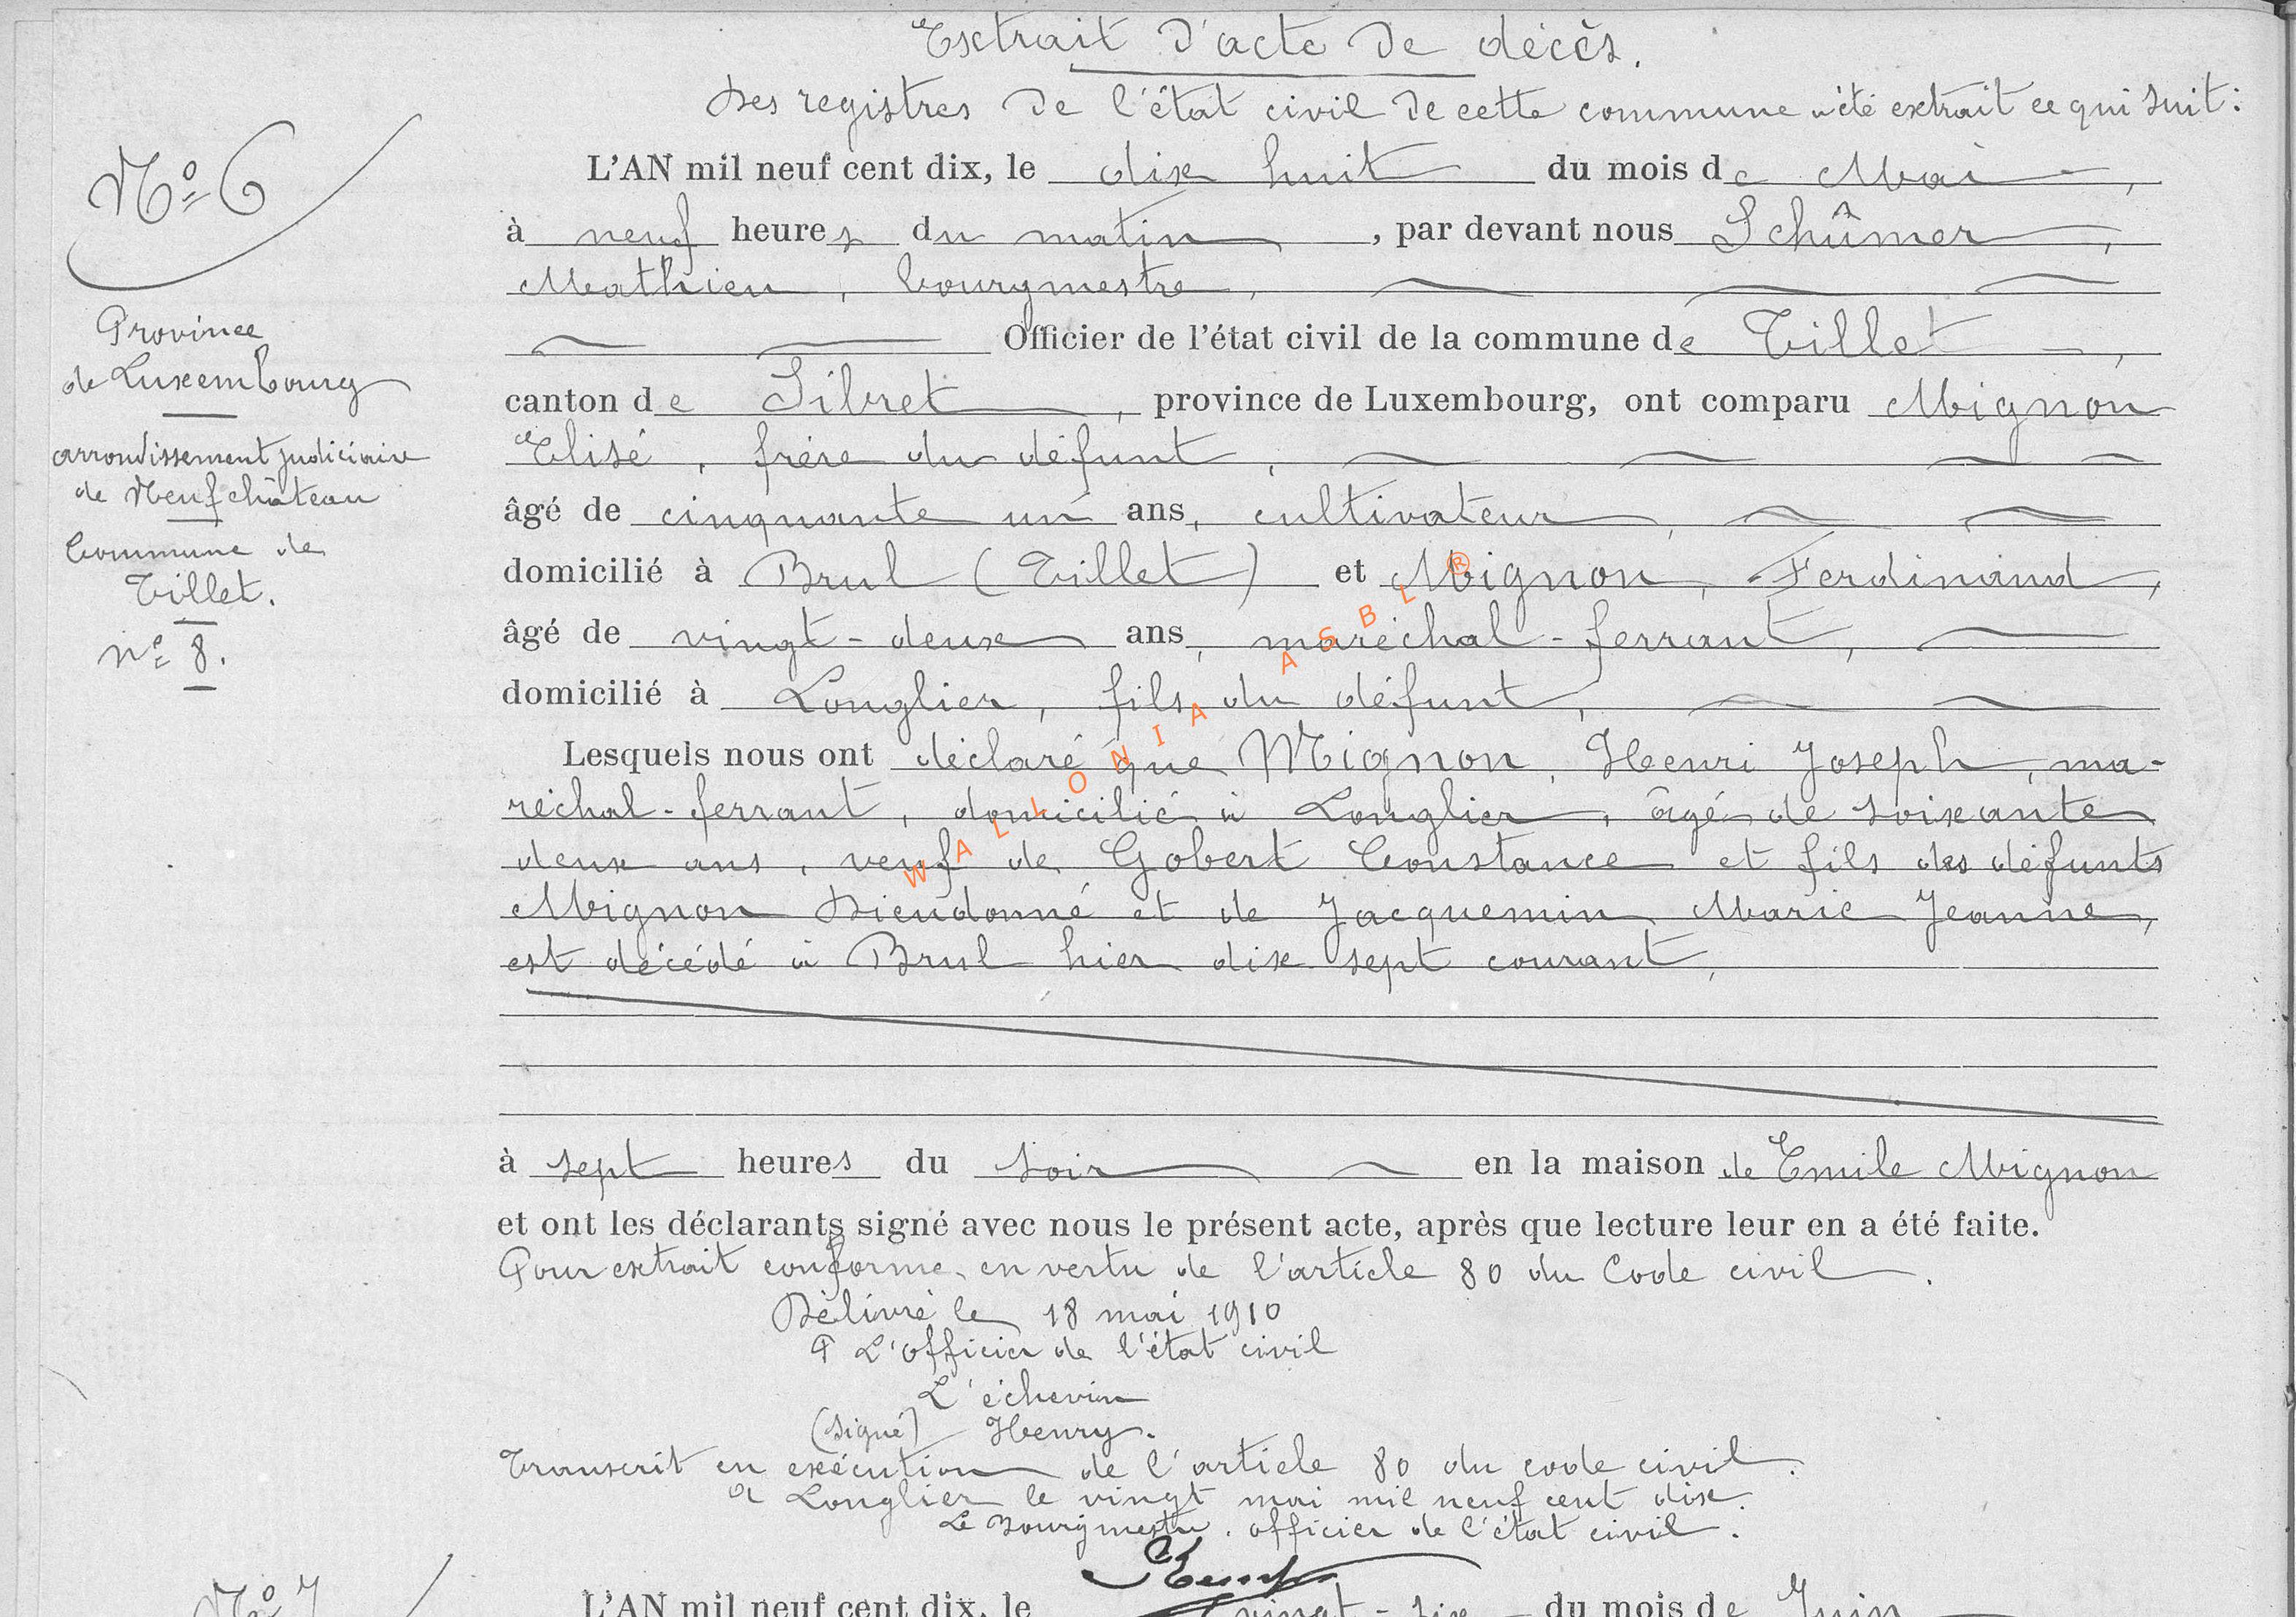 Extrait d'acte de décès.
Des registres de l'état civil de cette commune a été extrait ce qui suit :
N° 6
L'AN mil neuf cent dix, le dix huit du mois de Mai,
à neuf heures du matin, par devant nous Schûmer,
Mathieu, bourgmestre,
Officier de l'état civil de la commune de Tillet,
canton de Sibret, province de Luxembourg, ont comparu Mignon
Elisé, frère du défunt,
âgé de cinquante un ans, cultivateur,
domicilié à Brul (Tillet) et Mignon, Ferdinand,
âgé de vingt-deux ans, maréchal-ferrant,
domicilié à Longlier, fils du défunt,
Lesquels nous ont déclaré que Mignon, Henri Joseph, ma-
réchal-ferrant, domicilié à Longlier, âgé de soixante
deux ans, veuf de Gobert Constance et fils des défunts
Mignon Dieudonné et de Jacquemin Marie Jeanne,
est décédé à Brul hier dix sept courant,
à sept heures du soir en la maison de Emile Mignon
et ont les déclarants signé avec nous le présent acte, après que lecture leur en a été faite.
Pour extrait conforme, en vertu de l'article 80 du Code civil.
Délivré le 18 mai 1910
P L'officier de l'état civil
L'échevin
(signé) Henry.
Transcrit en exécution de l'article 80 du code civil.
à Longlier le vingt mai mil neuf cent dix.
Le Bourgmestre, officier de l'état civil.
Province
de Luxembourg
arrondissement judiciaire
de Neufchâteau
Commune de
Tillet.
n° 8.
WALLONIA ASBL ®
N° 7
L'AN mil neuf cent dix, le vingt-six du mois de Juin